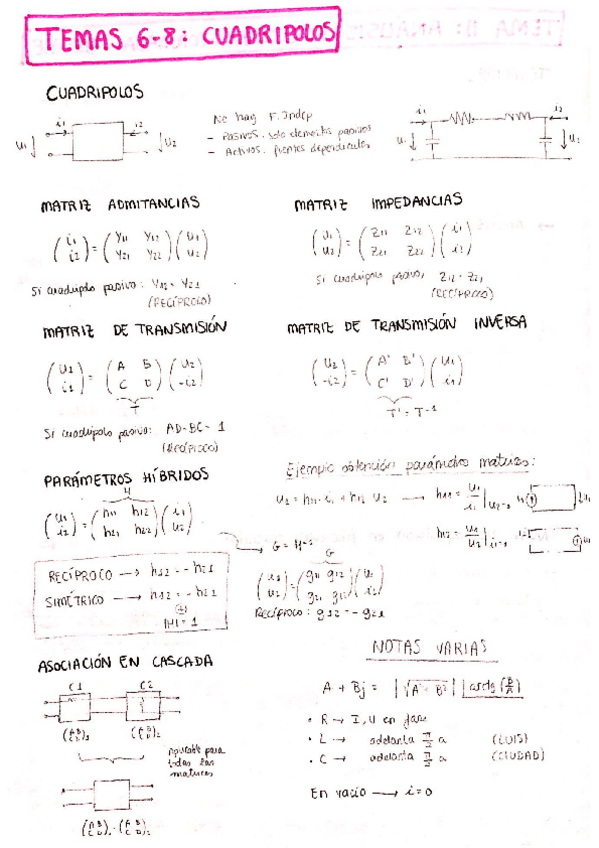 TEMAS 6-8: CUADRIPOLOS
CUADRIPOLOS
No hay F. Indep
- Pasivos. solo elementos pasivos
- Activos. fuentes dependientes
i1 i2 u1 u2
i1 i2 u1 u2
MATRIZ ADMITANCIAS
(i1 i2) = (Y11 Y12 Y21 Y22) (u1 u2)
Si cuadripolo pasivo: Y12 = Y21
(RECÍPROCO)
MATRIZ IMPEDANCIAS
(u1 u2) = (Z11 Z12 Z21 Z22) (i1 i2)
Si cuadripolo pasivo, Z12 = Z21
(RECÍPROCO)
MATRIZ DE TRANSMISIÓN
(u1 i1) = (A B C D) (u2 -i2)
T
Si cuadripolo pasivo: AD-BC = 1
(RECÍPROCO)
MATRIZ DE TRANSMISIÓN INVERSA
(u2 -i2) = (A' B' C' D') (u1 i1)
T' = T-1
PARÁMETROS HÍBRIDOS
H
(u1 i2) = (h11 h12 h21 h22) (i1 u2)
RECÍPROCO → h12 = -h21
SIMÉTRICO → h12 = -h21
(+)
|H| = 1
Ejemplo obtención parámetro matrices:
u1 = h11 · i1 + h12 u2 → h11 = u1/i1 | u2=0
h12 = u1/u2 | i1=0
G = H-1
G
(g11 g12 g21 g22)
Recíproco: g12 = -g21
ASOCIACIÓN EN CASCADA
C1 C2
(A B C D)1 (A B C D)2
Aplicable para
todas las
matrices
(A B C D)1 · (A B C D)2
NOTAS VARIAS
A + Bj = |√A²+B²| arctg (B/A)
• R → I, U en fase
• L → adelanta π/2 a (LUIS)
• C → adelanta π/2 a (CIUDAD)
En vacio → i=0